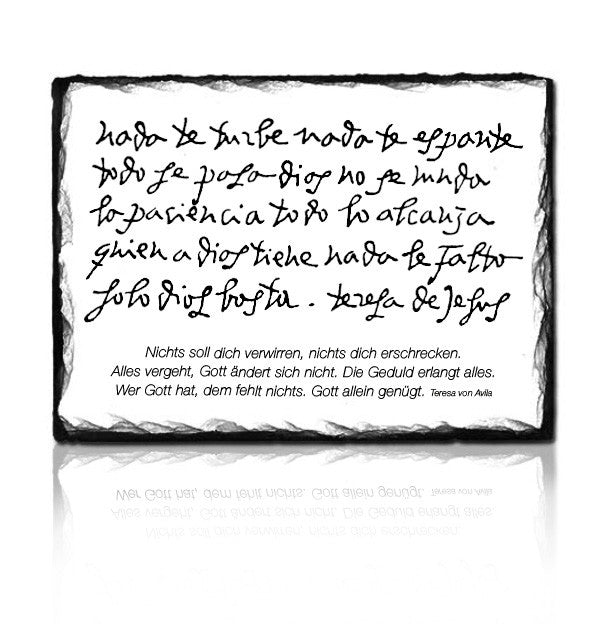 nada te turbe nada te espante
todo se pasa dios no se muda
la paciencia todo lo alcanza
quien a dios tiene nada le falta
solo dios basta . teresa de Jesus
Nichts soll dich verwirren, nichts dich erschrecken.
Alles vergeht, Gott ändert sich nicht. Die Geduld erlangt alles.
Wer Gott hat, dem fehlt nichts. Gott allein genügt. Teresa von Avila